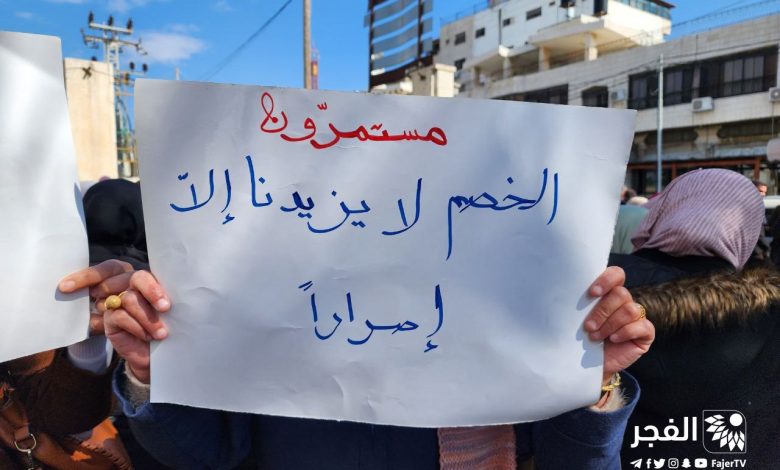 مستمرّون
الخصم لا يزيدنا إلاّ
إصراراً
الفجر
FajerTV